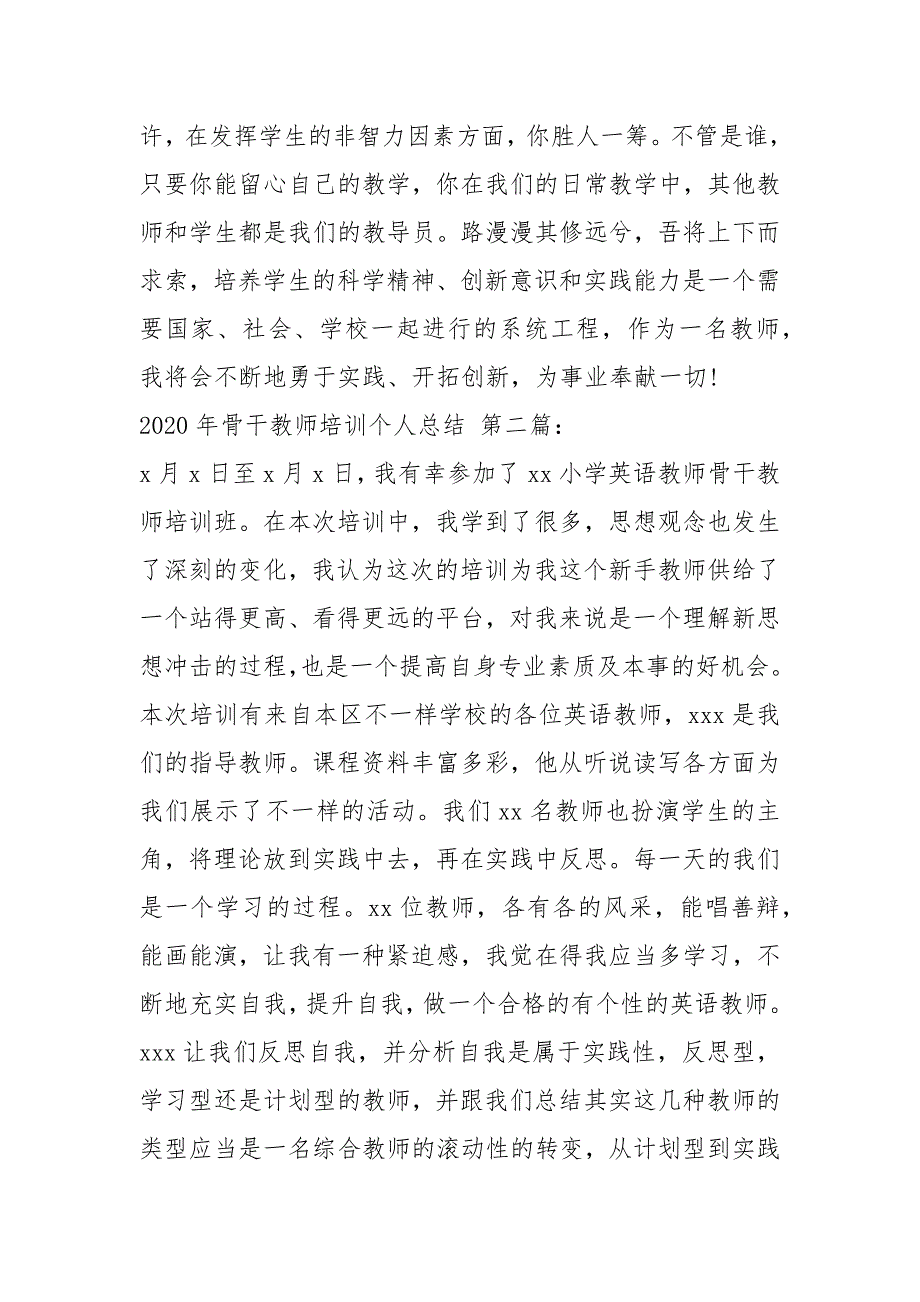 许，在发挥学生的非智力因素方面，你胜人一筹。不管是谁，
只要你能留心自己的教学，你在我们的日常教学中，其他教
师和学生都是我们的教导员。路漫漫其修远兮，吾将上下而
求索，培养学生的科学精神、创新意识和实践能力是一个需
要国家、社会、学校一起进行的系统工程，作为一名教师，
我将会不断地勇于实践、开拓创新，为事业奉献一切!
2020 年骨干教师培训个人总结 第二篇：
x 月 x 日至 x 月 x 日，我有幸参加了 xx 小学英语教师骨干教
师培训班。在本次培训中，我学到了很多，思想观念也发生
了深刻的变化，我认为这次的培训为我这个新手教师供给了
一个站得更高、看得更远的平台，对我来说是一个理解新思
想冲击的过程，也是一个提高自身专业素质及本事的好机会。
本次培训有来自本区不一样学校的各位英语教师，xxx 是我
们的指导教师。课程资料丰富多彩，他从听说读写各方面为
我们展示了不一样的活动。我们 xx 名教师也扮演学生的主
角，将理论放到实践中去，再在实践中反思。每一天的我们
是一个学习的过程。xx 位教师，各有各的风采，能唱善辩，
能画能演，让我有一种紧迫感，我觉在得我应当多学习，不
断地充实自我，提升自我，做一个合格的有个性的英语教师。
xxx 让我们反思自我，并分析自我是属于实践性，反思型，
学习型还是计划型的教师，并跟我们总结其实这几种教师的
类型应当是一名综合教师的滚动性的转变，从计划型到实践